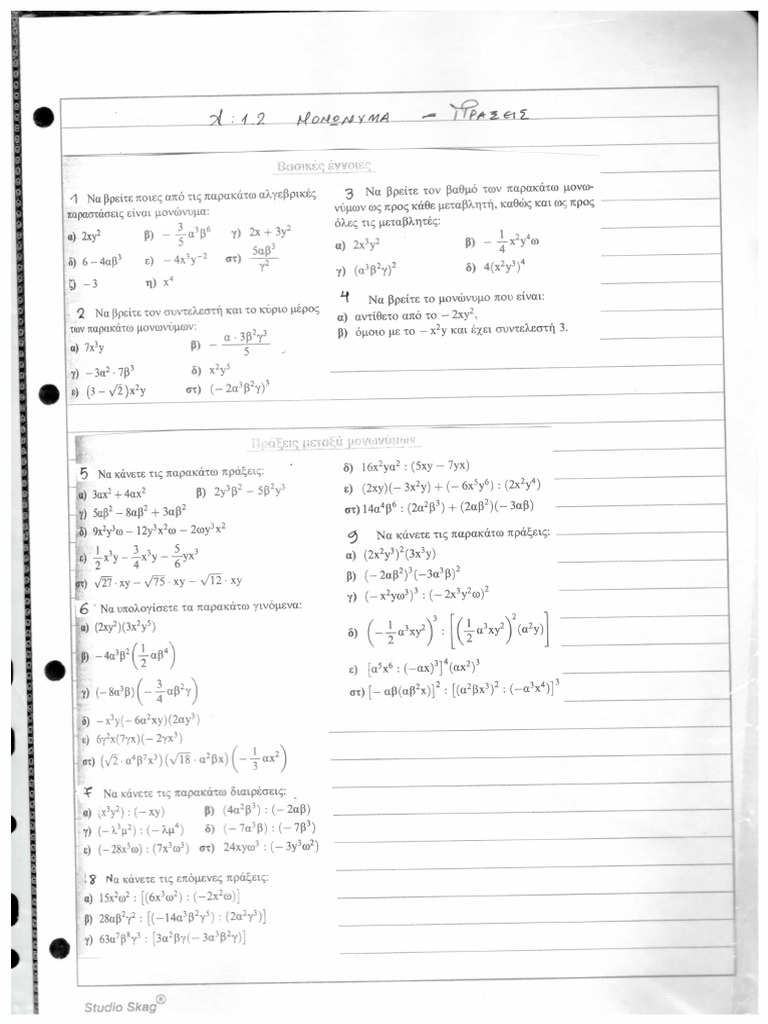 Α : 1.2 ΜΟΝΩΝΥΜΑ - ΠΡΑΞΕΙΣ
Βασικές έννοιες
1 Να βρείτε ποιες από τις παρακάτω αλγεβρικές
παραστάσεις είναι μονώνυμα:
α) 2xy² β) −3/5 α³β⁶ γ) 2x + 3y²
δ) 6 − 4αβ³ ε) −4x³y⁻² στ) 5αβ³/γ²
ζ) −3 η) x⁴
2 Να βρείτε τον συντελεστή και το κύριο μέρος
των παρακάτω μονωνύμων:
α) 7x³y β) −(α · 3β²γ³)/5
γ) −3α² · 7β³ δ) x²y⁵
ε) (3 − √2)x²y στ) (−2α³β²γ)³
3 Να βρείτε τον βαθμό των παρακάτω μονω-
νύμων ως προς κάθε μεταβλητή, καθώς και ως προς
όλες τις μεταβλητές:
α) 2x³y² β) −1/4 x²y⁴ω
γ) (α³β²γ)² δ) 4(x²y³)⁴
4 Να βρείτε το μονώνυμο που είναι:
α) αντίθετο από το −2xy²,
β) όμοιο με το −x²y και έχει συντελεστή 3.
Πράξεις μεταξύ μονωνύμων
5 Να κάνετε τις παρακάτω πράξεις:
α) 3αx² + 4αx² β) 2y³β² − 5β²y³
γ) 5αβ² − 8αβ² + 3αβ²
δ) 9x²y³ω − 12y³x²ω − 2ωy³x²
ε) 1/2 x³y − 3/4 x³y − 5/6 yx³
στ) √27 · xy − √75 · xy − √12 · xy
6 Να υπολογίσετε τα παρακάτω γινόμενα:
α) (2xy²)(3x²y⁵)
β) −4α³β²(1/2 αβ⁴)
γ) (−8α³β)(−3/4 αβ²γ)
δ) −x³y(−6α²xy)(2αy³)
ε) 6γ²x(7γx)(−2γx³)
στ) (√2 · α⁴β⁷x³)(√18 · α²βx)(−1/3 αx²)
7 Να κάνετε τις παρακάτω διαιρέσεις:
α) (x³y²) : (−xy) β) (4α²β³) : (−2αβ)
γ) (−λ³μ²) : (−λμ⁴) δ) (−7α³β) : (−7β³)
ε) (−28x⁵ω) : (7x³ω³) στ) 24xyω³ : (−3y³ω²)
8 Να κάνετε τις επόμενες πράξεις:
α) 15x²ω² : [(6x³ω²) : (−2x²ω)]
β) 28αβ²γ² : [(−14α³β²γ⁵) : (2α²γ³)]
γ) 63α⁷β⁸γ³ : [3α²βγ(−3α³β²γ)]
δ) 16x²yα² : (5xy − 7yx)
ε) (2xy)(−3x²y) + (−6x⁵y⁶) : (2x²y⁴)
στ) 14α⁴β⁶ : (2α²β³) + (2αβ²)(−3αβ)
9 Να κάνετε τις παρακάτω πράξεις:
α) (2x²y³)²(3x³y)
β) (−2αβ²)³(−3α³β)²
γ) (−x²yω³)³ : (−2x³y²ω)²
δ) (−1/2 α³xy²)³ : [(1/2 α³xy²)²(α²y)]
ε) [α⁵x⁶ : (−αx)³]⁴(αx²)³
στ) [−αβ(αβ²x)]² : [(α²βx³)² : (−α³x⁴)]³
Studio Skag®